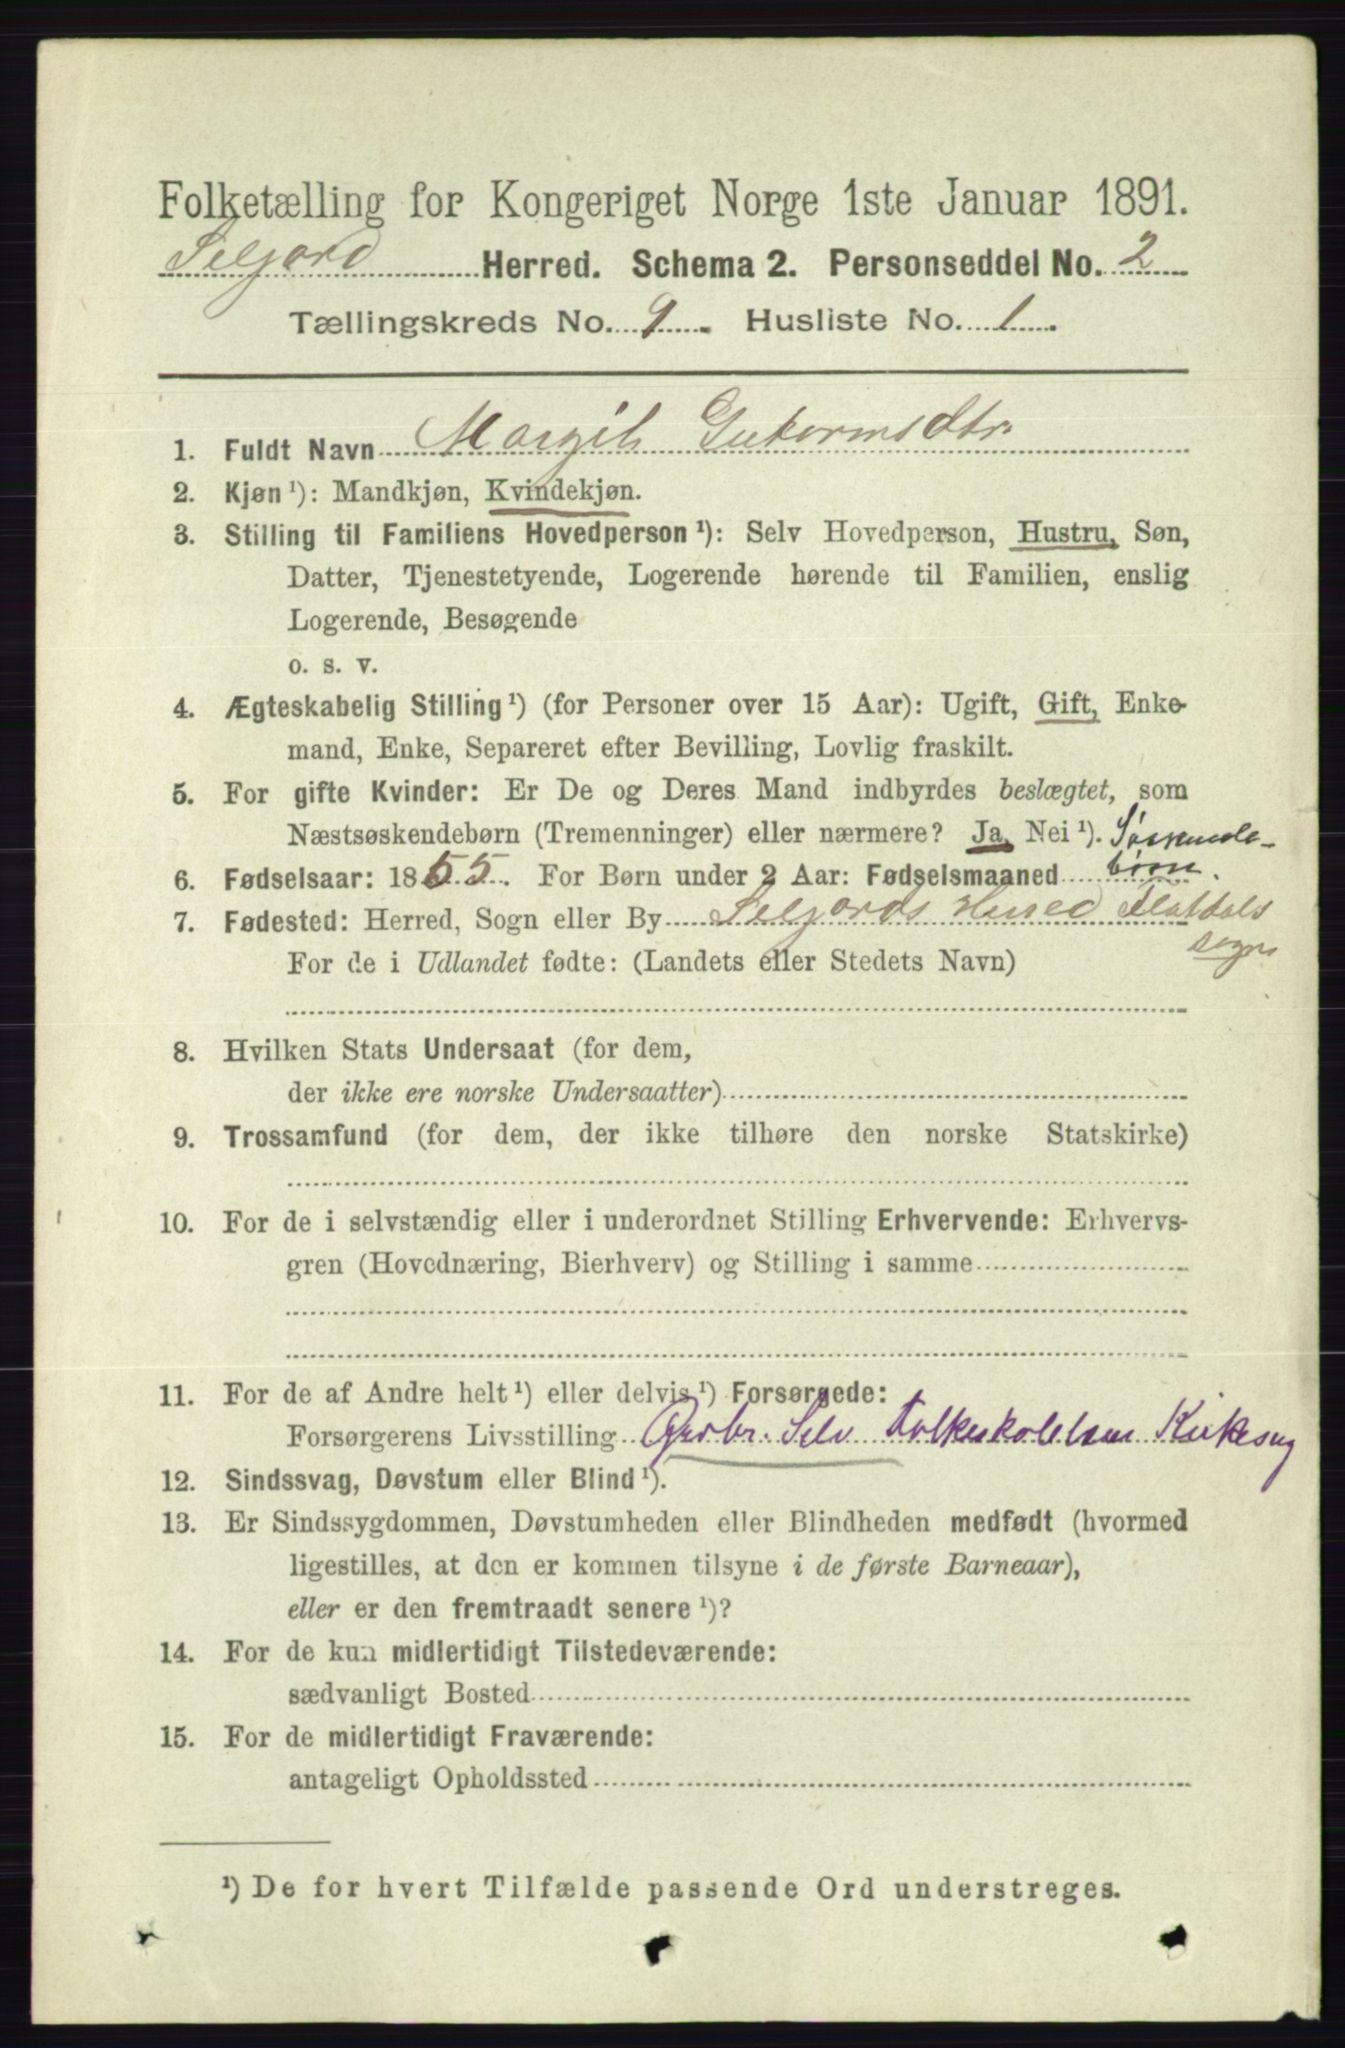 Folketælling for Kongeriget Norge 1ste Januar 1891.
Seljord Herred. Schema 2. Personseddel No. 2
Tællingskreds No. 9. Husliste No. 1.
1. Fuldt Navn Margit Gutormsdtr.
2. Kjøn ¹): Mandkjøn, Kvindekjøn.
3. Stilling til Familiens Hovedperson ¹): Selv Hovedperson, Hustru, Søn,
Datter, Tjenestetyende, Logerende hørende til Familien, enslig
Logerende, Besøgende
o. s. v.
4. Ægteskabelig Stilling ¹) (for Personer over 15 Aar): Ugift, Gift, Enke-
mand, Enke, Separeret efter Bevilling, Lovlig fraskilt.
5. For gifte Kvinder: Er De og Deres Mand indbyrdes beslægtet, som
Næstsøskendebørn (Tremenninger) eller nærmere? Ja, Nei ¹). Søskende-
6. Fødselsaar: 1855. For Børn under 2 Aar: Fødselsmaaned børn.
7. Fødested: Herred, Sogn eller By Seljords Herred Flatdals
sogn
For de i Udlandet fødte: (Landets eller Stedets Navn)
8. Hvilken Stats Undersaat (for dem,
der ikke ere norske Undersaatter)
9. Trossamfund (for dem, der ikke tilhøre den norske Statskirke)
10. For de i selvstændig eller i underordnet Stilling Erhvervende: Erhvervs-
gren (Hovednæring, Bierhverv) og Stilling i samme
11. For de af Andre helt ¹) eller delvis ¹) Forsørgede:
Forsørgerens Livsstilling Gbr. Selv Kirkesng
12. Sindssvag, Døvstum eller Blind ¹).
13. Er Sindssygdommen, Døvstumheden eller Blindheden medfødt (hvormed
ligestilles, at den er kommen tilsyne i de første Barneaar),
eller er den fremtraadt senere ¹)?
14. For de kun midlertidigt Tilstedeværende:
sædvanligt Bosted
15. For de midlertidigt Fraværende:
antageligt Opholdssted
¹) De for hvert Tilfælde passende Ord understreges.